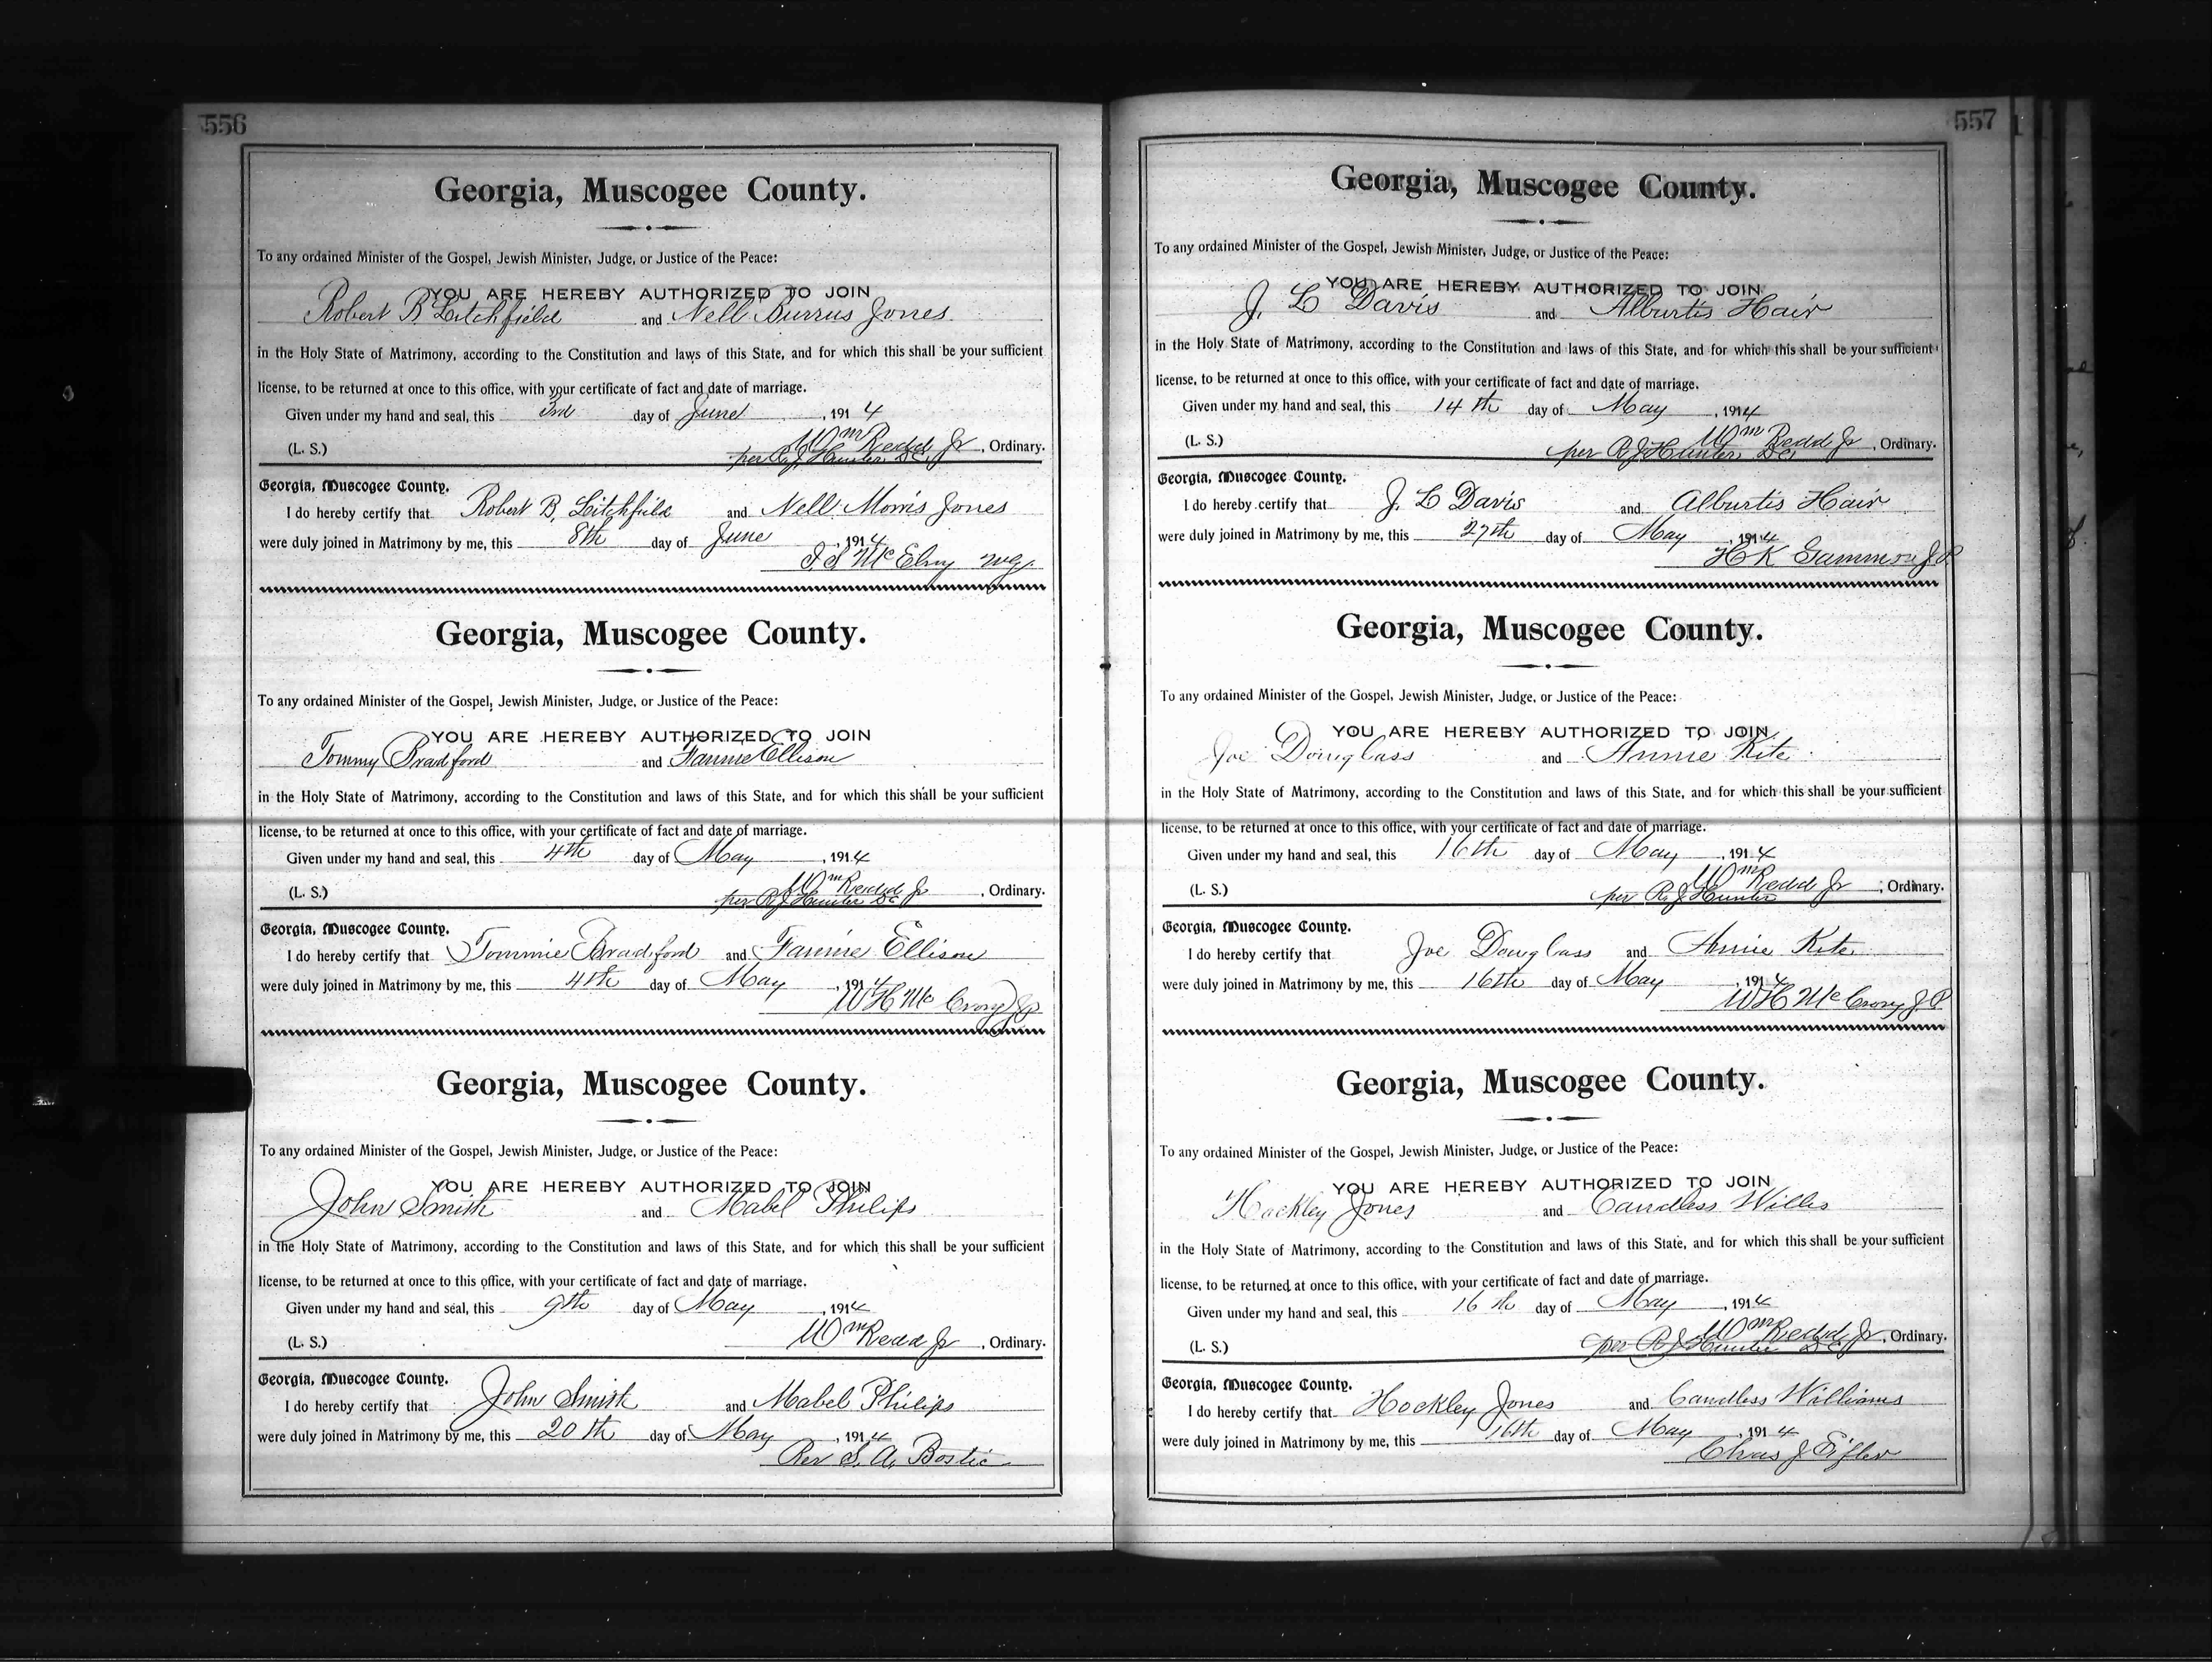 556
Georgia, Muscogee County.
To any ordained Minister of the Gospel, Jewish Minister, Judge, or Justice of the Peace:
YOU ARE HEREBY AUTHORIZED TO JOIN
Robert B Litchfield and Nell Burrus Jones
in the Holy State of Matrimony, according to the Constitution and laws of this State, and for which this shall be your sufficient
license, to be returned at once to this office, with your certificate of fact and date of marriage.
Given under my hand and seal, this 3rd day of June, 1914
(L. S.) Wm Redd Jr, Ordinary.
per R J Hunter DC
Georgia, Muscogee County.
I do hereby certify that Robert B. Litchfield and Nell Morris Jones
were duly joined in Matrimony by me, this 8th day of June, 1914
McElroy
Georgia, Muscogee County.
To any ordained Minister of the Gospel, Jewish Minister, Judge, or Justice of the Peace:
YOU ARE HEREBY AUTHORIZED TO JOIN
Tommy Bradford and Fannie Ellison
in the Holy State of Matrimony, according to the Constitution and laws of this State, and for which this shall be your sufficient
license, to be returned at once to this office, with your certificate of fact and date of marriage.
Given under my hand and seal, this 4th day of May, 1914
(L. S.) Wm Redd Jr, Ordinary.
per R J Hunter DC
Georgia, Muscogee County.
I do hereby certify that Tommie Bradford and Fannie Ellison
were duly joined in Matrimony by me, this 4th day of May, 1914
W H McCrory JP
Georgia, Muscogee County.
To any ordained Minister of the Gospel, Jewish Minister, Judge, or Justice of the Peace:
YOU ARE HEREBY AUTHORIZED TO JOIN
John Smith and Mabel Philips
in the Holy State of Matrimony, according to the Constitution and laws of this State, and for which this shall be your sufficient
license, to be returned at once to this office, with your certificate of fact and date of marriage.
Given under my hand and seal, this 9th day of May, 1914
(L. S.) Wm Redd Jr, Ordinary.
Georgia, Muscogee County.
I do hereby certify that John Smith and Mabel Philips
were duly joined in Matrimony by me, this 20th day of May, 1914
Rev S. A. Bostic
557
Georgia, Muscogee County.
To any ordained Minister of the Gospel, Jewish Minister, Judge, or Justice of the Peace:
YOU ARE HEREBY AUTHORIZED TO JOIN
J. L Davis and Alburtis Hair
in the Holy State of Matrimony, according to the Constitution and laws of this State, and for which this shall be your sufficient
license, to be returned at once to this office, with your certificate of fact and date of marriage.
Given under my hand and seal, this 14th day of May, 1914
(L. S.) Wm Redd Jr, Ordinary.
per R J Hunter DC
Georgia, Muscogee County.
I do hereby certify that J. L Davis and Alburtis Hair
were duly joined in Matrimony by me, this 27th day of May, 1914
H K Gammon J.P.
Georgia, Muscogee County.
To any ordained Minister of the Gospel, Jewish Minister, Judge, or Justice of the Peace:
YOU ARE HEREBY AUTHORIZED TO JOIN
Joe Douglass and Annie Kite
in the Holy State of Matrimony, according to the Constitution and laws of this State, and for which this shall be your sufficient
license, to be returned at once to this office, with your certificate of fact and date of marriage.
Given under my hand and seal, this 16th day of May, 1914
(L. S.) Wm Redd Jr, Ordinary.
per R J Hunter
Georgia, Muscogee County.
I do hereby certify that Joe Douglass and Annie Kite
were duly joined in Matrimony by me, this 16th day of May, 1914
W H McCrory, J.P.
Georgia, Muscogee County.
To any ordained Minister of the Gospel, Jewish Minister, Judge, or Justice of the Peace:
YOU ARE HEREBY AUTHORIZED TO JOIN
Hockley Jones and Candless Willis
in the Holy State of Matrimony, according to the Constitution and laws of this State, and for which this shall be your sufficient
license, to be returned at once to this office, with your certificate of fact and date of marriage.
Given under my hand and seal, this 16th day of May, 1914
(L. S.) Wm Redd Jr, Ordinary.
per R J Hunter DC
Georgia, Muscogee County.
I do hereby certify that Hockley Jones and Candless Williams
were duly joined in Matrimony by me, this 16th day of May, 1914
Chas J Eifler